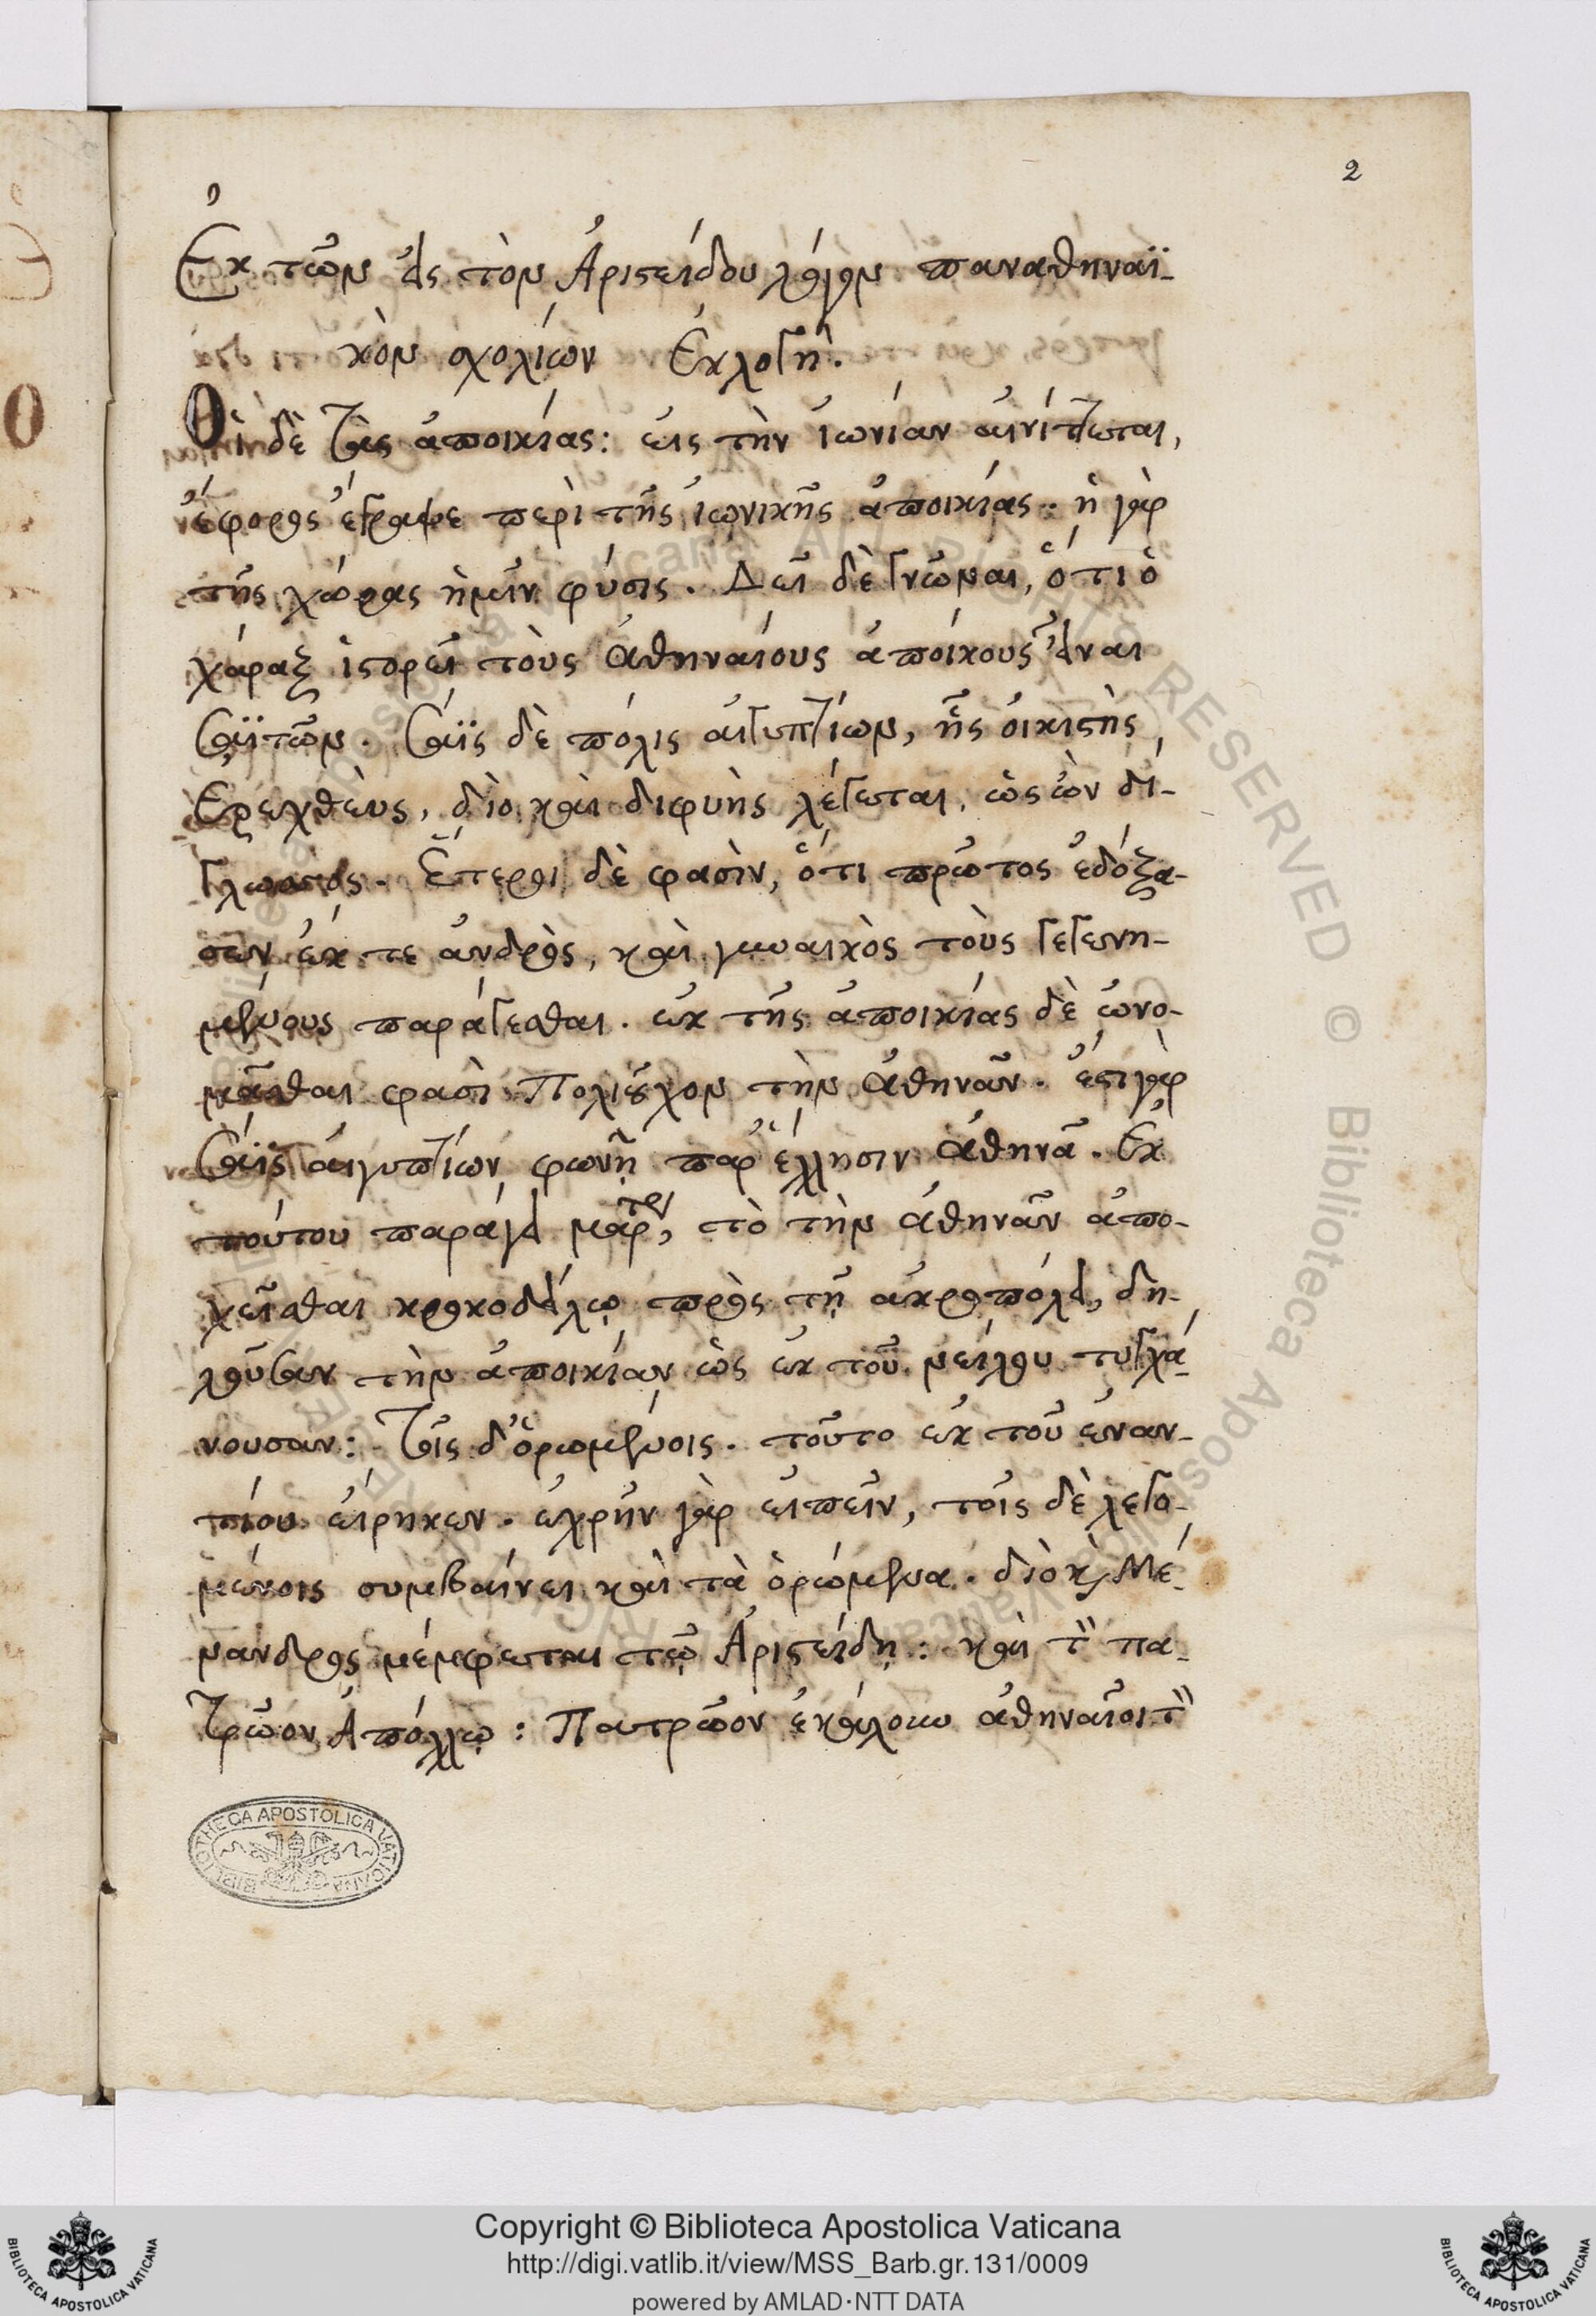 2
Ἐκ τῶν εἰς τὸν Ἀριστείδου λόγον παναθηναϊ-
κὸν σχολίων Ἐκλογή.
Οἱ δὲ τὰς ἀποικίας: εἰς τὴν ἰωνίαν αἰνίττεται,
ἔφορος ἔγραψε περὶ τῆς ἰωνικῆς ἀποικίας. ἡ γὰρ
τῆς χώρας ἡμῖν φύσις. Δεῖ δὲ γνῶναι, ὅτι ὁ
χάραξ ἱστορεῖ τοὺς Ἀθηναίους ἀποίκους εἶναι
Σαϊτῶν. Σάϊς δὲ πόλις αἰγυπτίων, ἧς οἰκιστὴς
Ερεχθεὺς, διὸ καὶ διφυὴς λέγεται, ὡς ὢν δί-
γλωσσος. Ἕτεροι δὲ φασὶν, ὅτι πρῶτος ἐδόξα-
σεν ἔκ τε ἀνδρὸς, καὶ γυναικὸς τοὺς γεγενη-
μένους παράγεσθαι. ἐκ τῆς ἀποικίας δὲ ὠνο-
μᾶσθαι φασὶ Πολιοῦχον τὴν Ἀθηνᾶν. ἔστι γὰρ
Σάϊς αἰγυπτίων φωνῇ παρ' ἕλλησιν Ἀθηνᾶ. Ἐκ
τούτου παράγει μαρτ, τὸ τὴν Ἀθηνᾶν ἀπο-
κεῖσθαι κροκοδείλῳ πρὸς τῇ ἀκροπόλει, δη-
λοῦσαν τὴν ἀποικίαν ὡς ἐκ τοῦ νείλου τυγχά-
νουσαν: Τοῖς δ' ὁρωμένοις. τοῦτο ἐκ τοῦ ἐναν-
τίου εἴρηκεν. ἐχρῆν γὰρ εἰπεῖν, τοῖς δὲ λεγο-
μένοις συμβαίνει καὶ τὰ ὁρώμενα. διὸ κ Μέ-
νανδρος μέμφεται τῷ Ἀριστείδῃ: καὶ τ πα-
τρῶον Ἀπόλλω: Πατρῶον ἐκάλουν ἀθηναῖοι τ
BIBLIOTHECA APOSTOLICA VATICANA
Biblioteca Apostolica Vaticana ALL RIGHTS RESERVED ©
Copyright © Biblioteca Apostolica Vaticana
http://digi.vatlib.it/view/MSS_Barb.gr.131/0009
powered by AMLAD·NTT DATA
BIBLIOTECA APOSTOLICA VATICANA
BIBLIOTECA APOSTOLICA VATICANA